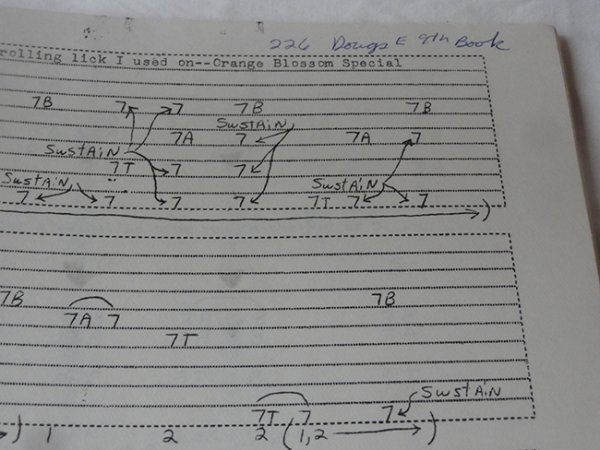 226 Dougs E 9th Book
rolling lick I used on--Orange Blossom Special
7B 7 7 7B 7B
SustAiN
7A 7 7A 7
SustAiN
7T 7 7
SustAiN SustAiN
7 7 7 7 7T 7 7
)
7B 7B
7A 7
7T
SustAiN
7T 7 7
) 1 2 2 (1,2 )